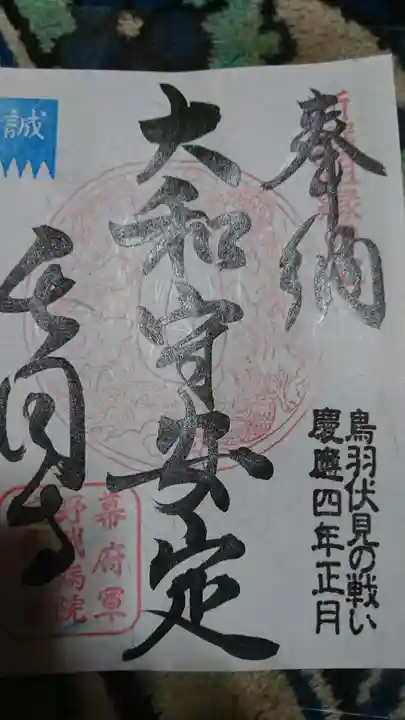 奉納
鳥羽伏見の戦い
慶應四年正月
大和守安定
誠
幕府軍
野戦病院